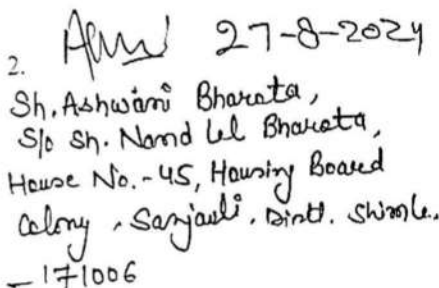 27-8-2024
2.
Sh. Ashwani Bharata,
S/o Sh. Nand Lal Bharata,
House No.-45, Housing Board
Colony, Sanjauli, Distt. Shimla,
- 171006